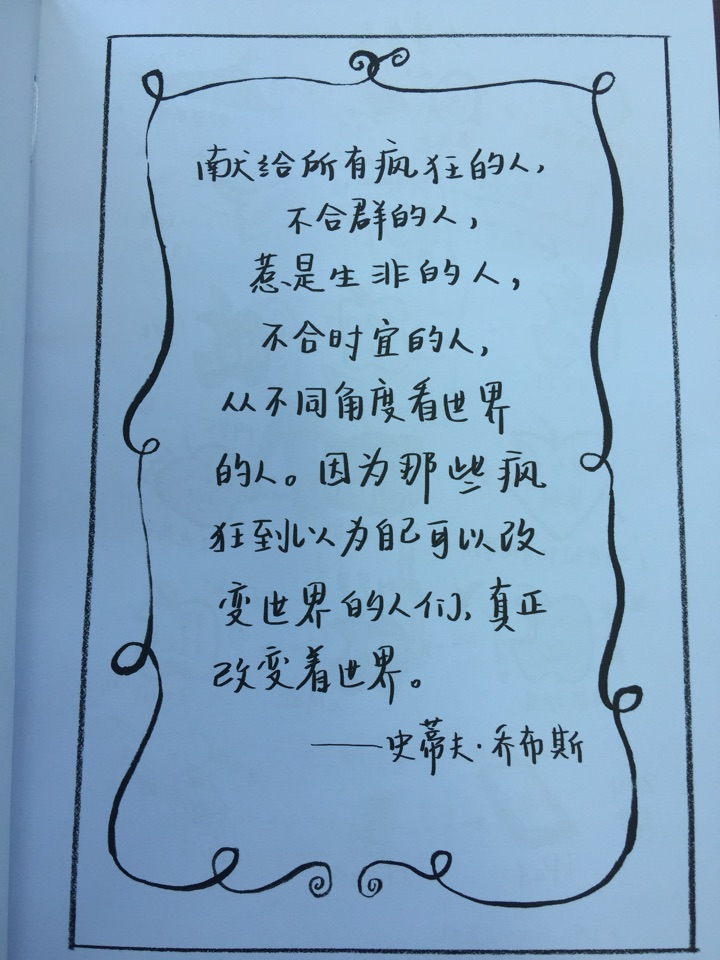 献给所有疯狂的人，
不合群的人，
惹是生非的人，
不合时宜的人，
从不同角度看世界
的人。因为那些疯
狂到以为自己可以改
变世界的人们，真正
改变着世界。
——史蒂夫·乔布斯